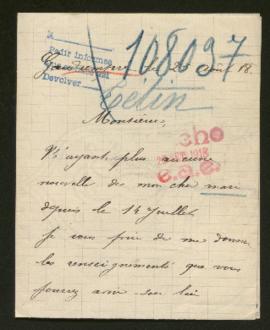 N
Pedir informes
Devolver
108.097
Letin
Monsieur,
N'ayant plus aucune
nouvelle de mon cher mari
depuis le 14 Juillet
je vous prie de me donner
les renseignements que vous
pourrez avoir sur lui